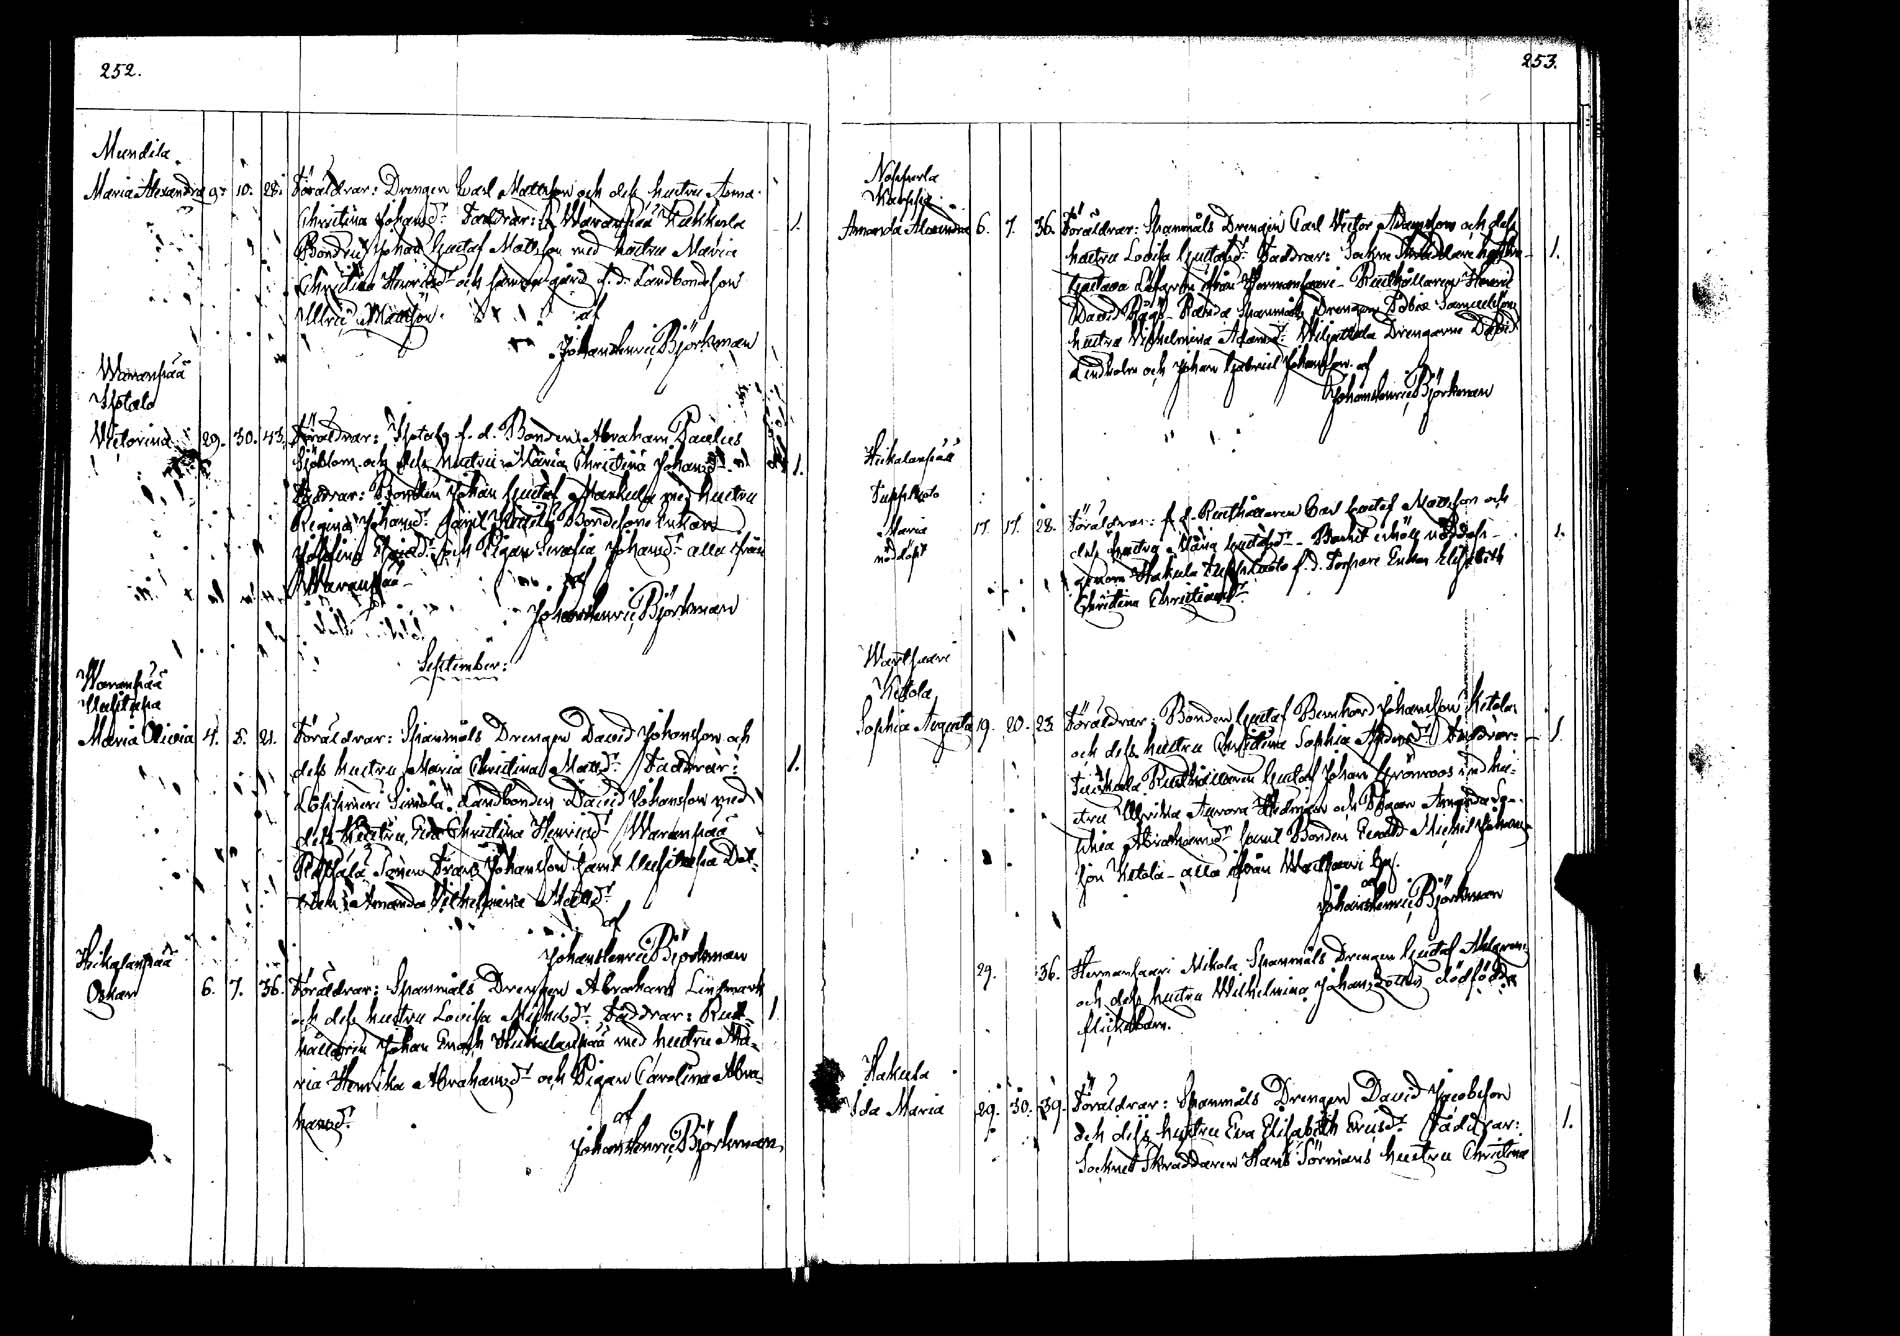 252.
Mundila
Maria Alexandra 9. 10. 28. Föräldrar: Drengen Carl Mattsson och dess hustru Anna
Christina Johansdr. Faddrar: Waranpää Kukkola 1.
Bonden Johan Gustaf Mattsson med hustru Maria
Christina Henricsdr. och samma gård f. d. Landbondeson
Ulric Mattsson.
af
Johan Henric Björkman
Waranpää
29. 30. 43. Föräldrar: f. d. Bonden Abraham Paulus
Sjöblom och dess hustru Maria Christina Johansdr. 1.
Faddrar: Bonden Johan Gustaf med hustru
Regina Johansdr. samt Bondesons Enkan
och Pigan Serafia Johansdr. alla ifrån
Waranpää
af
Johan Henric Björkman
September:
Waranpää
Uusitupa
Maria Olivia 4. 5. 21. Föräldrar: Spanmåls Drengen David Johansson och
dess hustru Maria Christina Mattsdr. Faddrar: 1.
Simola Landbonden David Johansson med
dess hustru Eva Christina Henricsdr. Waranpää
Sonen Frans Johansson samt Uusitupa Dot-
tren Amanda Vilhelmina Mattsdr.
af
Johan Henric Björkman
Heikalanpää
Oskar 6. 7. 36. Föräldrar: Spanmåls Drengen Abraham Linkmark
och dess hustru Lovisa Michelsdr. Faddrar: Rust- 1.
hållaren Johan Enoch Heikalanpää med hustru Ma-
ria Henrika Abrahamsdr. och Pigan Carolina Abra-
hamsdr.
af
Johan Henric Björkman
253.
Nopperla
Amanda Alexandra 6. 7. 36. Föräldrar: Spanmåls Drengen Carl Victor Adamsson och dess
hustru Lovisa Gustafsdr. Faddrar: Sockne Skräddare hustru 1.
Gustava Löfgren från Hermansaari Rusthållaren Henric
David Spanmåls Drengen Tobias Samuelsson
hustru Vilhelmina Adamsdr. Drengarne David
Lindholm och Johan Gabriel Johansson. af
Johan Henric Björkman
Heikalanpää
Maria 17. 17. 28. Föräldrar: f. d. Rusthållaren Carl Gustaf Mattsson och
nöddöpt dess hustru Maria Gustafsdr. Barnet erhöll nöddop 1.
genom Hakula f. d. Torpare Enkan Elisabeth
Christina Christiansdr.
Wartsaari
Ketola
Sophia Augusta 19. 20. 23. Föräldrar: Bonden Gustaf Bernhard Johansson Ketola
och dess hustru Christina Sophia Andersdr. Faddrar: 1.
Rusthållaren Gustaf Johan Grönroos med hu-
stru Ulrika Aurora och Pigan Amanda So-
phia Abrahamsdr. samt Bonden Evald Michel Johans-
son Ketola alla ifrån Wartsaari by.
af
Johan Henric Björkman
29. 36. Hermansaari Mikola Spanmåls Drengen Gustaf Ahlgren
och dess hustru Wilhelmina Johansdotters dödfödda
flickebarn.
Hakula
Ida Maria 29. 30. 39. Föräldrar: Spanmåls Drengen David Jacobsson
och dess hustru Eva Elisabeth Ericsdr. Faddrar: 1.
Sockne Skräddaren Hans Törmans hustru Christina